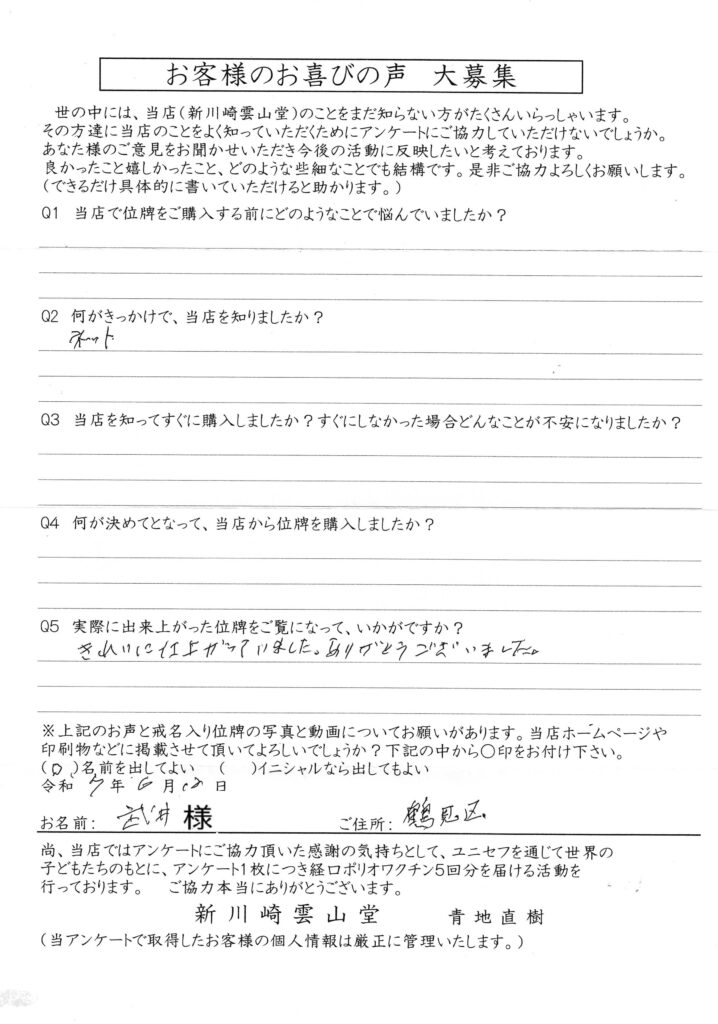 お客様のお喜びの声　大募集
世の中には、当店(新川崎雲山堂)のことをまだ知らない方がたくさんいらっしゃいます。
その方達に当店のことをよく知っていただくためにアンケートにご協力していただけないでしょうか。
あなた様のご意見をお聞かせいただき今後の活動に反映したいと考えております。
良かったこと嬉しかったこと、どのような些細なことでも結構です。是非ご協力よろしくお願いします。
(できるだけ具体的に書いていただけると助かります。)
Q1　当店で位牌をご購入する前にどのようなことで悩んでいましたか？
Q2　何がきっかけで、当店を知りましたか？
ネット
Q3　当店を知ってすぐに購入しましたか？すぐにしなかった場合どんなことが不安になりましたか？
Q4　何が決めてとなって、当店から位牌を購入しましたか？
Q5　実際に出来上がった位牌をご覧になって、いかがですか？
きれいに仕上がっていました。ありがとうございました。
※上記のお声と戒名入り位牌の写真と動画についてお願いがあります。当店ホームページや
印刷物などに掲載させて頂いてよろしいでしょうか？下記の中から○印をお付け下さい。
(○)名前を出してよい　(　)イニシャルなら出してもよい
令和 7年 6月 18日
お名前：武井様　ご住所：鶴見区
尚、当店ではアンケートにご協力頂いた感謝の気持ちとして、ユニセフを通じて世界の
子どもたちのもとに、アンケート1枚につき経口ポリオワクチン5回分を届ける活動を
行っております。　ご協力本当にありがとうございます。
新川崎雲山堂　青地直樹
(当アンケートで取得したお客様の個人情報は厳正に管理いたします。)